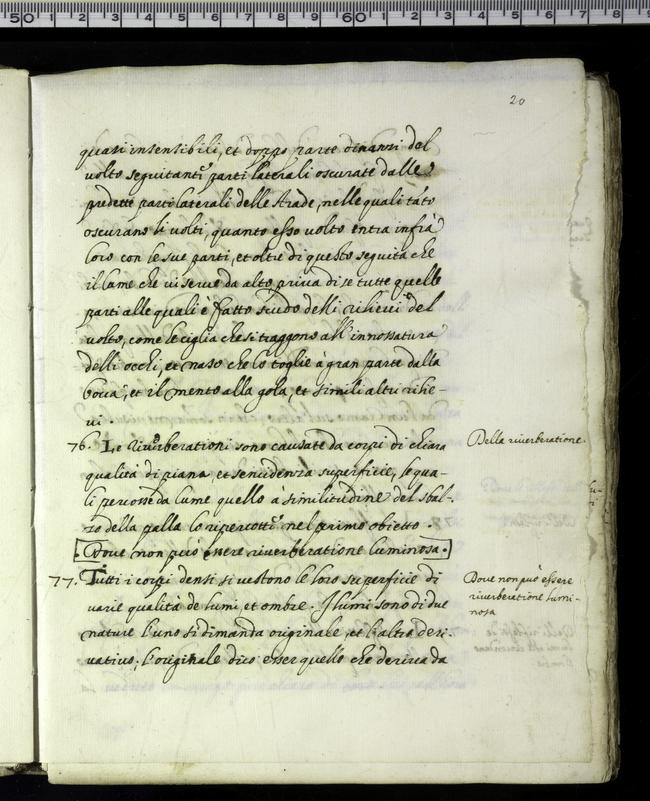 20
quasi insensibili, et doppo parte dinanzi del
volto seguitanti parti laterali oscurate dalle
predette parti laterali delle strade, nelle quali tãto
oscurano li volti, quanto esso volto entra infrà
loro con le sue parti, et oltre di questo seguita che
il lame che vi serve da alto, priva di se tutte quelle
parti alle quali è fatto scudo delli rilievi del
volto, come le ciglia che si traggono all' innossatura
delli occhi, et naso che lo toglie à gran parte dalla
bocca, et il mento alla gola, et simili altri rilie-
vi.
76. Le riverberationi sono causate da corpi di chiara
qualità di piana, et semidensa superficie, le qua-
li percosse da lume quello à similitudine del sbal-
zo della palla lo ripercotte nel primo obietto.
.Dove non può essere riverberatione luminosa.
77. Tutti i corpi densi si vestono le loro superficie di
varie qualità de lumi, et ombre. I lumi sono di due
nature l'uno si dimanda originale, et l'altro deri-
vativo; l'originale dico esser quello che deriva da
Della riverberatione.
Dove non può essere
riverberatione lumi-
nosa